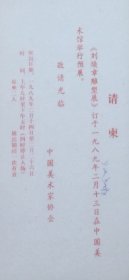 请柬
《刘焕章雕塑展》订于一九八九年二月十三日在中国美
术馆举行预展。
敬请光临
中国美术家协会
展出日期：一九八九年二月十四日至二月二十六日
时间：上午九时至下午五时（四时停止入场）